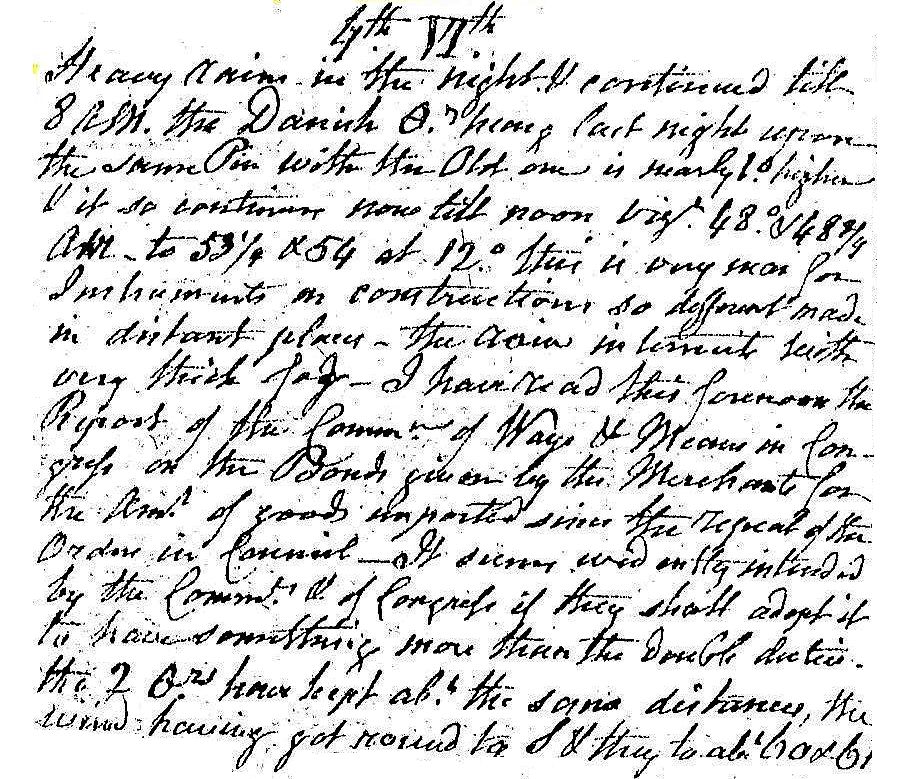 4th VIth
Heavy rains in the night & continued till
8 AM. the Danish Θ.r hung last night upon
the same Pin with the Old one is nearly 1.° higher
& it so continues now till noon vizt. 48.° & 48 3/4
AM. to 53 1/4 & 54 at 12.° this is very near for
Instruments on constructions so different made
in distant places - the rain intermits with
very thick fog - I have read this forenoon the
Report of the Commee of Ways & Means in Con-
gress on the Bonds given by the Merchants for
the Amt. of goods imported since the repeal of the
Orders in Council - It seems evidently intended
by the Commee. & of Congress if they shall adopt it
to have something more than the double duties.
the 2 Θ.rs have kept abt. the same distance, the
wind having got round to S & they to abt. 60 & 61